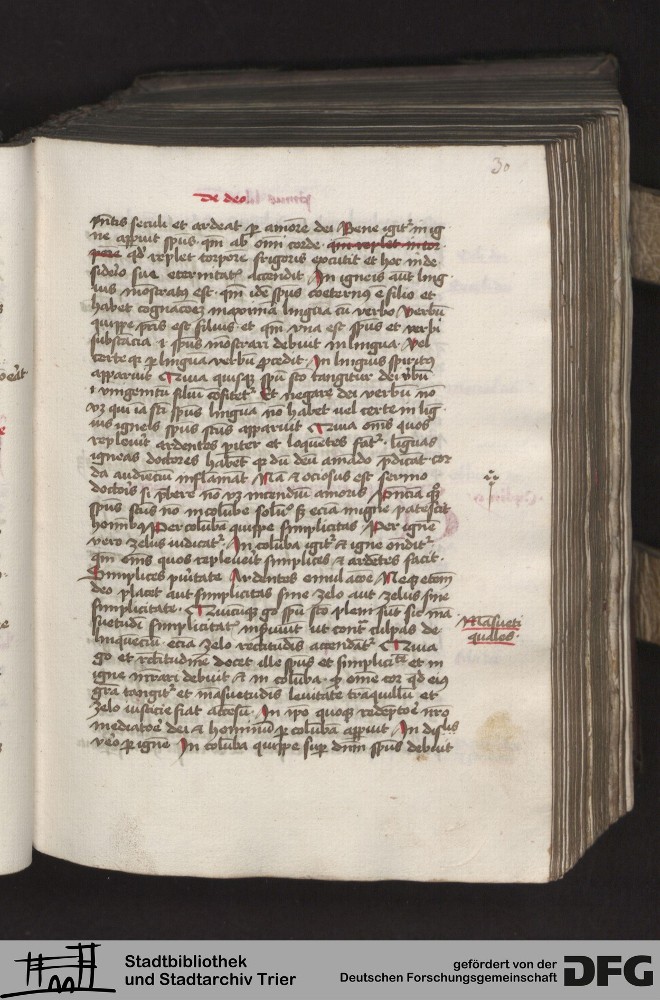 30
De deo
pntis seculi et ardeat p amore dei Bene igit in ig
ne apparuit spus qm ab omi corde qm replet intor
pore qd replet torpore frigoris excutit et hoc in de
siderio sue eternitatis accendit In igneis aut ling
uis mostratus est qm ide spus coeternus e filio et
habet cognacoem maxima lingua cu verbo verbu
quippe pris est filius et qm una est spus et verbi
substacia i spus mostrari debuit in lingua Vel
certe qr p lingua verbu procedit In linguis spiritus
apparuit Quia quisq spu sto tangitur dei verbu
i unigenitu filiu cofitet Et negare dei verbu no
vz qui ia sti spus lingua no habet vel certe in lig
uis igneis spus stus apparuit Quia omis quos
repleuit ardentes piter et loquetes facit linguas
igneas doctores habet qr du deu amando predicat cor
da audienciu inflamat Na et ociosus est sermo
doctoris si prebere no vz incendiu amoris
spus stus no in colube solu sz eciam in igne patescit
hominibus Per coluba quippe simplicitas Per igne
vero zelus indicat In coluba igit et igne ondit
qm omis quos repleuerit simplices et ardetes facit
Simplices puritate Ardentes emulacoe Neq etem
deo placet aut simplicitas sine zelo aut zelus sine
simplicitate Quicuq go spu sto pleni sut sic ma
suetudi simplicitatis inseruiut ut contra culpas de
linquenciu ecia zelo rectitudis accendat Quia
go et rectitudine docet ille spus et simplicitate et in
igne mrari debuit et in coluba qr ome cor qd eius
gra tangit et masuetudis leuitate traquillu et
zelo iusticie fiat accesu In ipo quoq redeptoe nro
mediatoe dei et hominu p coluba apparuit In discipulis
vero p igne In coluba quippe sup dnm spus debuit
Masueti
qualles
Stadtbibliothek
und Stadtarchiv Trier
gefördert von der
Deutschen Forschungsgemeinschaft
DFG